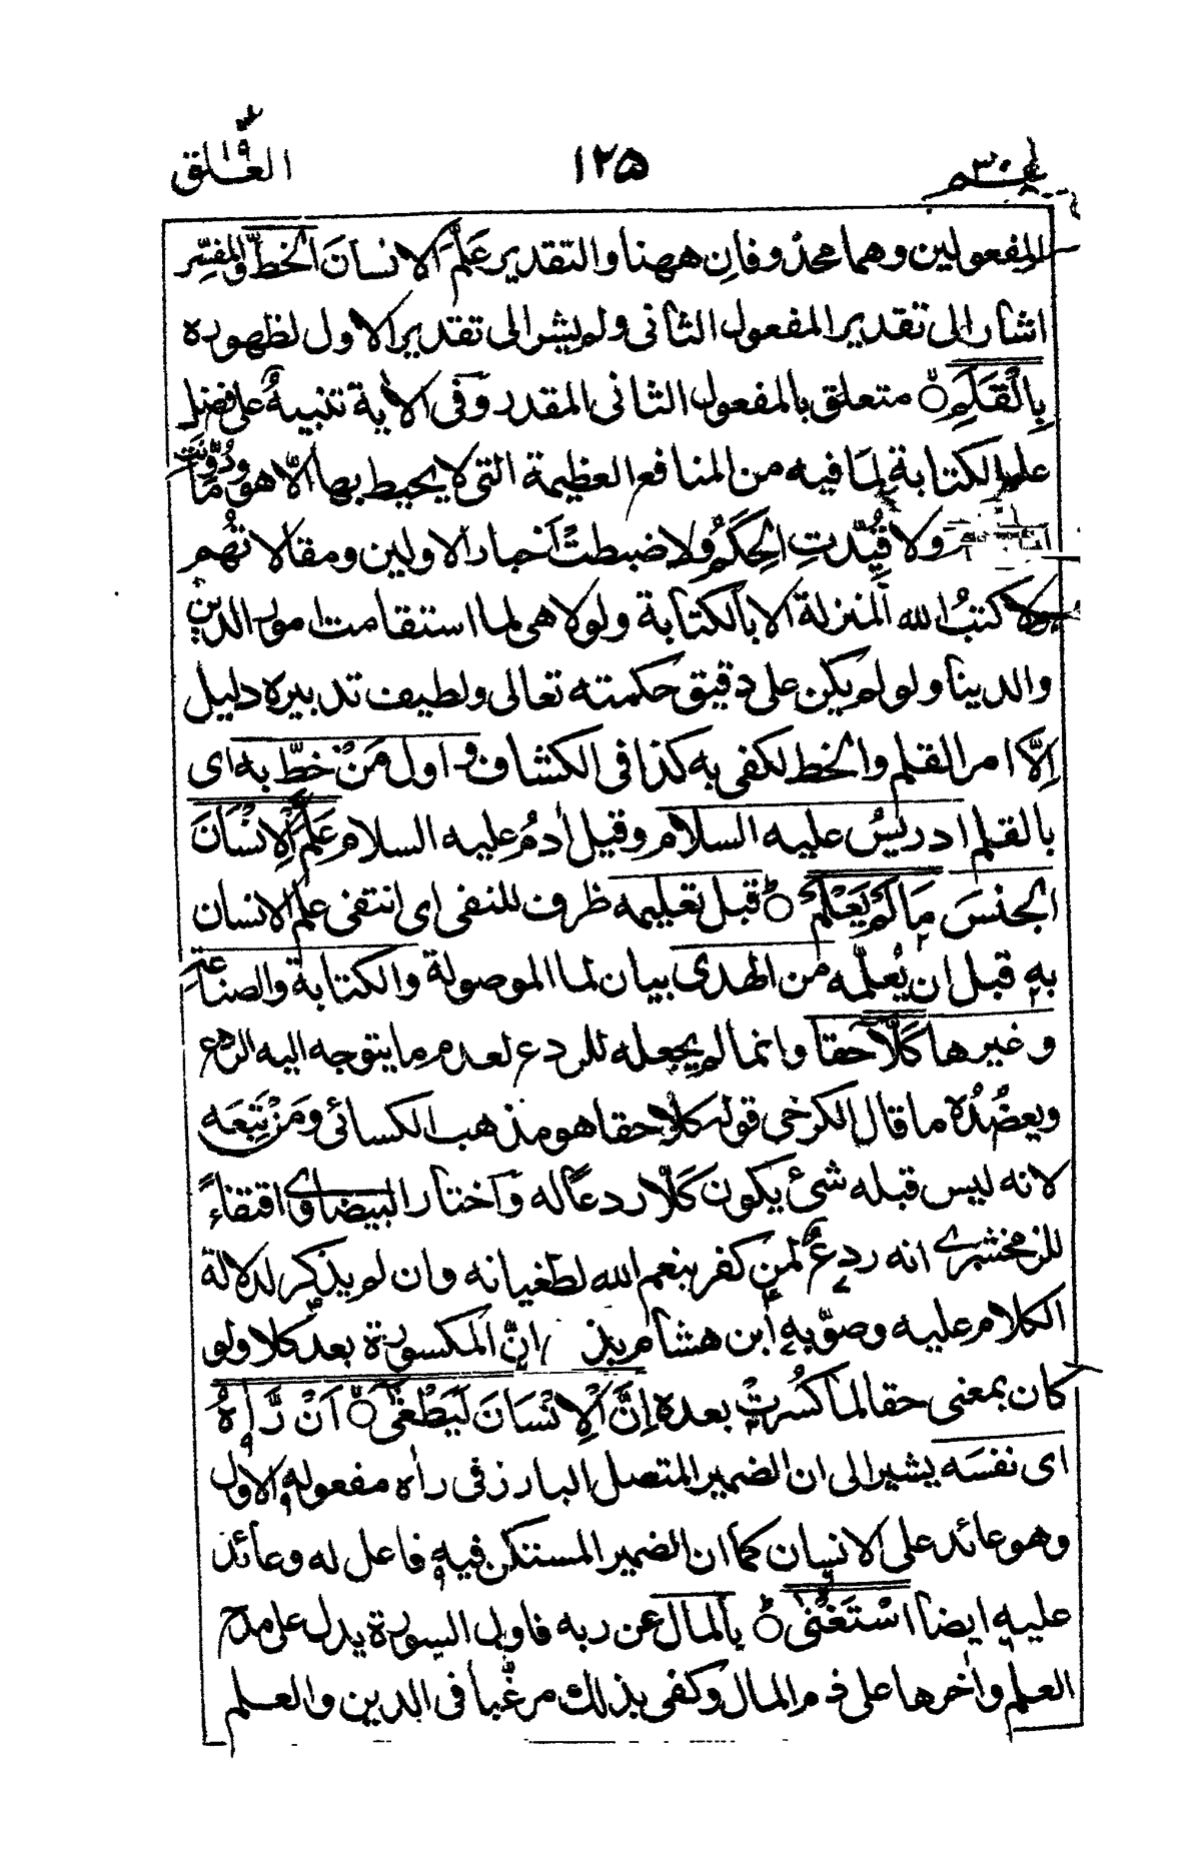 عم ٣٠ ١٢٥ العلق ٩٦
المفعولين وهما محذوفانِ ههنا والتقدير عَلَّمَ الانسانَ الخطَّ والمفسِّر
اشار الى تقدير المفعول الثانى ولم يشر الى تقدير الاول لظهوره
بِالْقَلَمِ ۙ متعلق بالمفعول الثانى المقدر وفى الاٰية تنبيهٌ على فضل
علم الكتابةِ لِمَا فيه من المنافع العظيمة التى لا يحيط بها الّا هو وما دُوِّنَت
ولا قُيِّدتِ الحِكَمُ ولا ضبطتْ اخبار الاولين ومقالاتُهُم
ولا كتبُ الله المنزلة الا بالكتابة ولولا هى لما استقامت امور الدين
والدينا ولو لم يكن على دقيق حكمته تعالى ولطيف تدبيره دليل
اِلّا امر القلم والخط لكفى به كذا فى الكشاف واول مَنْ خطَّ به اى
بالقلم ادريسُ عليه السلام وقيل اٰدمُ عليه السلام عَلَّمَ الْاِنْسَانَ
الجنسَ مَا لَمْ يَعْلَمْ ۭ قبل تعليمه ظرف للنفى اى انتفى علم الانسان
بهٖ قبل ان يُعلّمه من الهدى بيان لما الموصولة والكتابة والصناعة
وغيرها كَلَّا حقا وانما لم يجعله للردع لعدم ما يتوجه اليه الردع
ويعضُدُه ما قال الكرخى قوله كلّا حقا هو مذهب الكسائى ومَنْ تَبِعَه
لانه ليس قبله شئ يكون كَلَّا ردعًا له واختار البيضاوى اقتفاءً
للزمخشرى انه ردعٌ لمن كفر بنعم الله لطغيانه وان لم يذكر لدلالة
الكلام عليه وصوّبهٖ ابن هشام اِنَّ المكسورة بعد كلا ولو
كان بمعنى حقا لما كُسِرتْ بعده اِنَّ الْاِنْسَانَ لَيَطْغٰىٓ ۙ اَنْ رَّاٰهُ
اى نفسَه يشير الى ان الضمير المتصل البارز فى راٰه مفعوله الاول
وهو عائد على الانسان كما ان الضمير المستكن فيه فاعل له وعائد
عليه ايضا اسْتَغْنٰى ۭ بالمال عن ربه فاول السورة يدل على مدح
العلم واٰخرها على ذم المال وكفى بذلك مرغّبا فى الدين والعلم